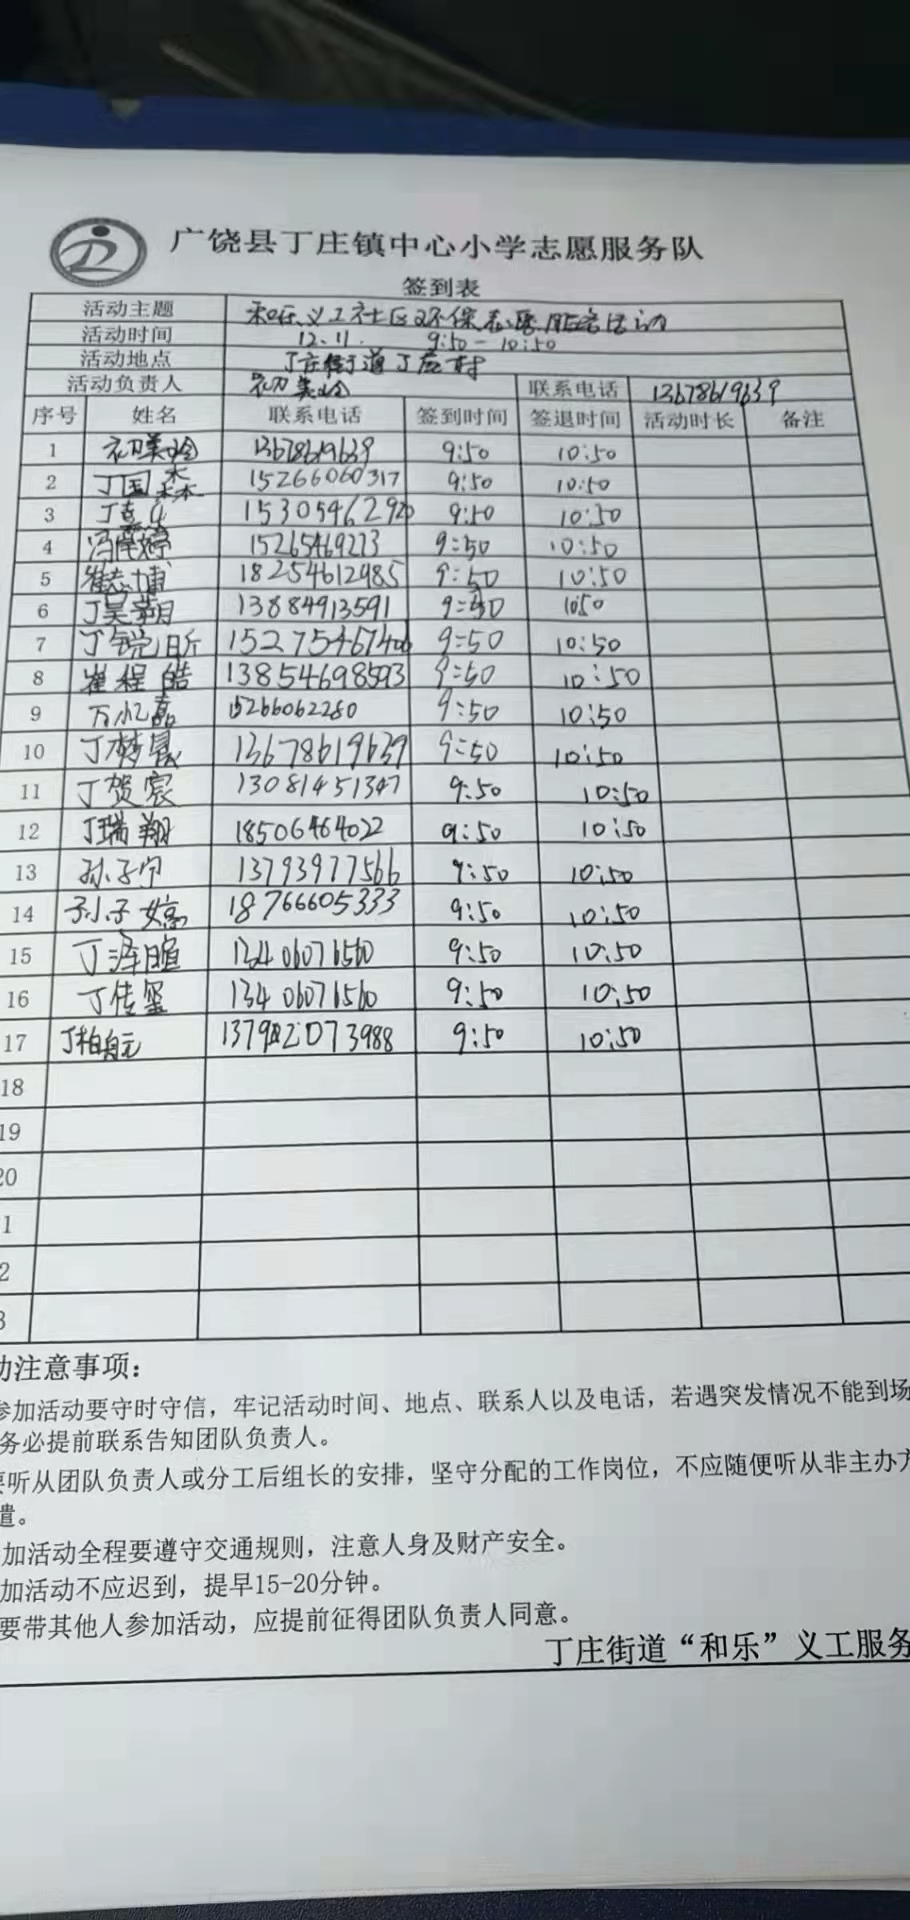 广饶县丁庄镇中心小学志愿服务队
签到表
活动主题 和乐义工社区环保志愿服务活动
活动时间 12.11. 9:50-10:50
活动地点 丁庄街道丁庄村
活动负责人 初美玲 联系电话 13678619639
序号 姓名 联系电话 签到时间 签退时间 活动时长 备注
1 初美玲 13678619639 9:50 10:50
2 丁国森 15266060317 9:50 10:50
3 15305462920 9:50 10:50
4 15265469223 9:50 10:50
5 崔志博 18254612985 9:50 10:50
6 丁昊朔 13884913591 9:50 10:50
7 丁锐昕 15275467406 9:50 10:50
8 崔程皓 13854698593 9:50 10:50
9 万忆嘉 15266062280 9:50 10:50
10 丁梦晨 13678619639 9:50 10:50
11 丁贺宸 13081451347 9:50 10:50
12 丁瑞翔 18506464022 9:50 10:50
13 孙子宁 13793977566 9:50 10:50
14 孙子婷 18766605333 9:50 10:50
15 丁泽暄 13406076560 9:50 10:50
16 丁传玺 13406076560 9:50 10:50
17 丁柏元 9:50 10:50
18
19
20
1
2
3
动注意事项:
参加活动要守时守信，牢记活动时间、地点、联系人以及电话，若遇突发情况不能到场
务必提前联系告知团队负责人。
要听从团队负责人或分工后组长的安排，坚守分配的工作岗位，不应随便听从非主办方
遣。
加活动全程要遵守交通规则，注意人身及财产安全。
加活动不应迟到，提早15-20分钟。
要带其他人参加活动，应提前征得团队负责人同意。
丁庄街道“和乐”义工服务